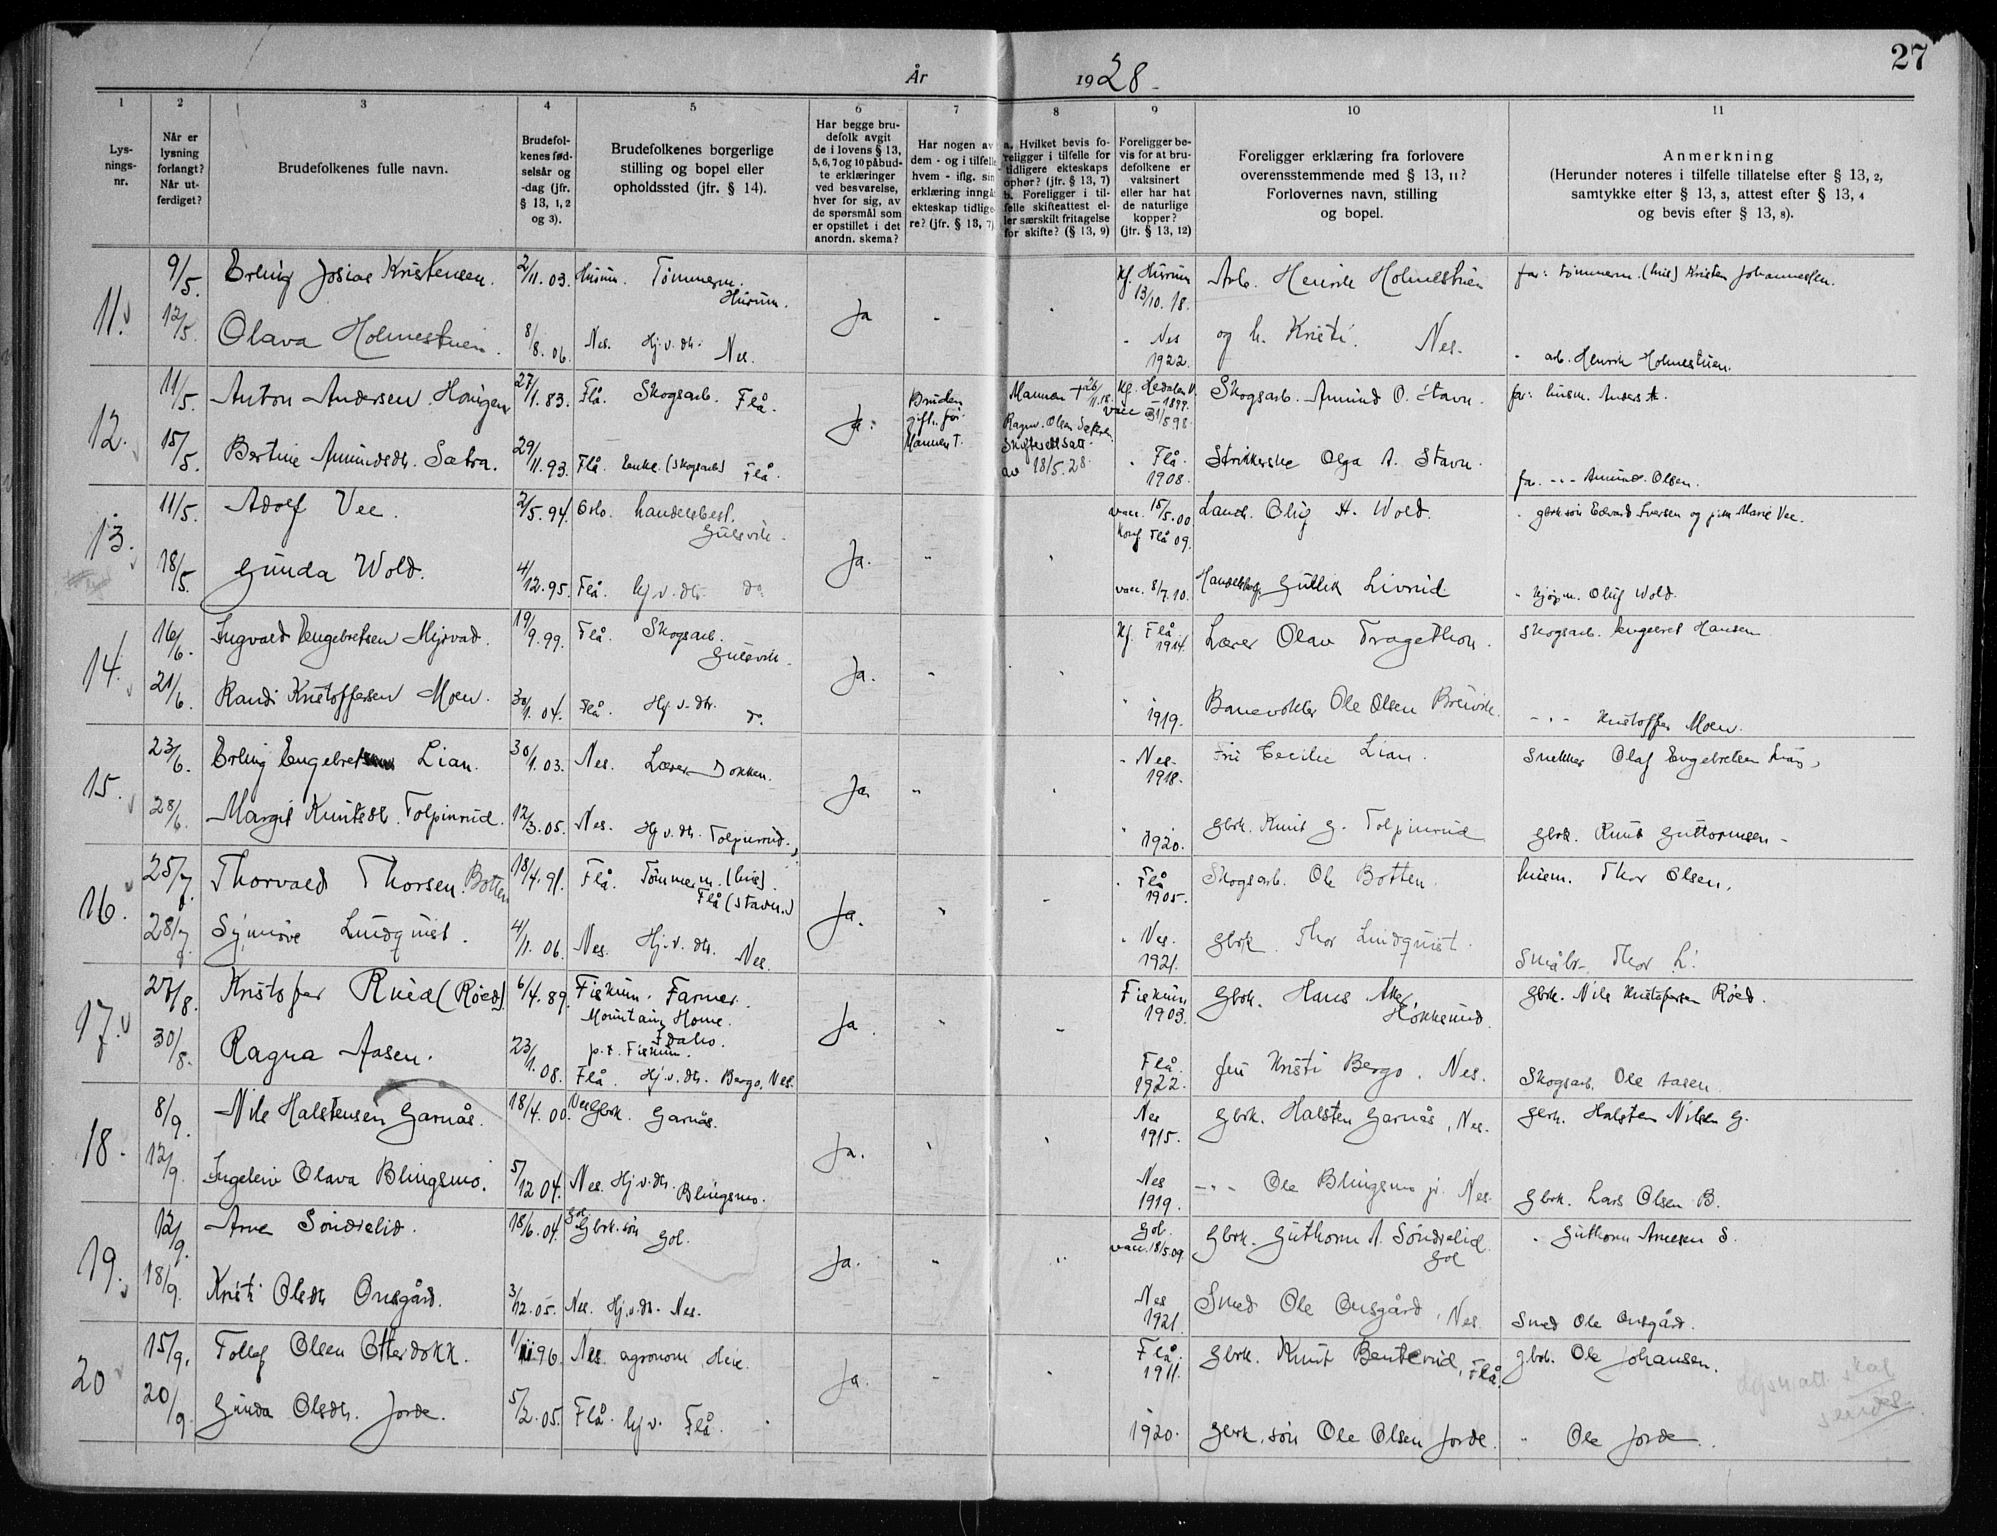 27
År 1928.
1 2 3 4 5 6 7 8 9 10 11
Lys-
nings-
nr.
Når er
lysning
forlangt?
Når ut-
ferdiget?
Brudefolkenes fulle navn.
Brudefol-
kenes fød-
selsår og
-dag (jfr.
§ 13, 1, 2
og 3).
Brudefolkenes borgerlige
stilling og bopel eller
opholdssted (jfr. § 14).
Har begge bru-
defolk avgit
de i lovens § 13,
5, 6, 7 og 10 påbud-
te erklæringer
ved besvarelse,
hver for sig, av
de spørsmål som
er opstillet i det
anordn. skema?
Har nogen av
dem - og i tilfelle
hvem - iflg. sin
erklæring inngå
ekteskap tidlige-
re? (jfr. § 13, 7)
a. Hvilket bevis fo-
religger i tilfelle for
tidligere ekteskaps
ophør? (jfr. § 13, 7)
b. Foreligger i til-
felle skifteattest el-
ler særskilt fritagelse
for skifte? (§ 13, 9)
Foreligger be-
vis for at bru-
defolkene er
vaksinert
eller har hat
de naturlige
kopper?
(jfr. § 13, 12)
Foreligger erklæring fra forlovere
overensstemmende med § 13, 11?
Forlovernes navn, stilling
og bopel.
Anmerkning
(Herunder noteres i tilfelle tillatelse efter § 13, 2,
samtykke efter § 13, 3, attest efter § 13, 4
og bevis efter § 13, 8).
11.
9/5. Erling Josias Kristensen. 2/11.03. Hurum. Tømmerm. Hurum. Ja - Kf. Hurum 13/10.18. Arb. Henrik Holmestuen far: tømmerm. (hus) Kristen Johannessen.
12/5. Olava Holmestuen. 8/8.06. Nes. Hj.v. dtr. Nes. - Nes 1922. og h. Kristi. Nes. - arb. Henrik Holmestuen.
12.
11/5. Anton Andersen 27/1.83. Flå. Skogsarb. Flå. Ja. Bruden gift før. Mannen †. Mannen † 26/11.18. Kf. Hedalen V. 1899. vacc 31/5 98. Skogsarb. Amund O. Stavn. far: husm. Anders A.
15/5. Bertine Amundsdtr. Sætra. 29/11.93. Flå. Enke. (Skogsarb) Flå. Ragnv. Olsen Skifteattest av 18/5.28. - Flå. 1908. Strikkerske Olga A. Stavn. far. -"- Amund Olsen.
13.
11/5. Adolf Vee. 2/5.94. Oslo. handelsbest. Gulsvik. Ja. " vacc. 18/5.00 Konf. Flå 09. Landh. Oluf H. Wold. - gbrk.søn Edvard Iversen og pike Marie Vee.
18/5. Gunda Wold. 4/12.95. Flå. hj.v. dtr. do. vacc. 8/7.10. Handelsbest. Gullik Livrud. - kjøpm. Oluf Wold.
14.
16/6. Ingvald Engebretsen Myrvad. 19/9.99. Flå. Skogsarb. Gulsvik. Ja. - Kf. Flå 1914. Lærer Olav Tragethon. Skogsarb. Engebret Hansen
21/6. Randi Kristoffersen Moen. 30/1.04. Flå. Hj.v. dtr. do. " 1919. Banevokter Ole Olsen Breivik. -"- Kristoffer Moen.
15.
23/6. Erling Engebretsen Lian. 30/1.03. Nes. Lærer Dokken. Ja. " - Nes. 1918. Fru Cecilie Lian. Snekker Olaf Engebretsen Lian,
28/6. Margit Knutsdtr. Tolpinrud. 12/3.05. Nes. Hj.v. dtr. Tolpinrud. " 1920. Gbrk. Knut G. Tolpinrud Gbrk. Knut Guttormsen -
16.
25/7. Thorvald Thorsen Botten 18/4.91. Flå. Tømmerm. (hus). Flå (Stavn.) Ja. " - - Flå 1905. Skogsarb. Ole Botten. husm. Thor Olsen.
28/7. Synnøve Lundquist. 4/1.06. Nes. Hj.v. dtr. Nes. - Nes. 1921. Gbrk. Thor Lundquist. Småbr. Thor L.
17.
27/8. Kristofer Rued (Röed) 6/4.89. Fiskum. Farmer. Mountain Home. Idaho. p.t. Fiskum. Ja. " - Fiskum 1903. Gbrk. Hans Hokksund. Gbrk. Nils Kristofersen Röed.
30/8. Ragna Aasen. 23/1.08. Flå. Hj.v. dtr. Bergo, Nes. Flå. 1922. fru Kristi Bergo. Nes. Skogsarb. Ole Aasen.
18.
8/9. Nils Halstensen Garnås. 18/4.00. Nes Gbrk. Garnås. Ja. " Nes 1915. Gbrk. Halsten Garnås, Nes. Gbrk. Halsten Nilsen G.
12/9. Ingeleiv Olava Blingsmo. 5/12 04. Nes. Hj.v. dtr. Blingsmo. Nes 1919. -"- Ole Blingsmo jr. Nes. Gbrk. Lars Olsen B.
19.
12/9. Arne Söndrelid. 18/6.04. Gol. Gbrk. søn Gol. Ja. " Gol. vacc. 18/5.09. Gbrk. Guthorm A. Söndrelid. Gol - Guthorm Arnesen S.
18/9. Kristi Olsdtr Onsgård. 3/12.05. Nes. Hj.v. dtr. Nes. Nes 1921. Smed Ole Onsgård, Nes. Smed Ole Onsgård.
20
15/9. Tollef Olsen Otterdokk. 1/11 96. Nes. agronom Ja. - Flå. 1911. Gbrk. Knut Benterud, Flå. gbrk. Ole Johansen.
20/9. Gunda Olsdtr. Jorde. 5/2.05. Flå. hj.v. Flå. " 1920. Gbrk. søn Ole Olsen Jorde. " Ole Jorde.
Lysn.att. skal
sendes.